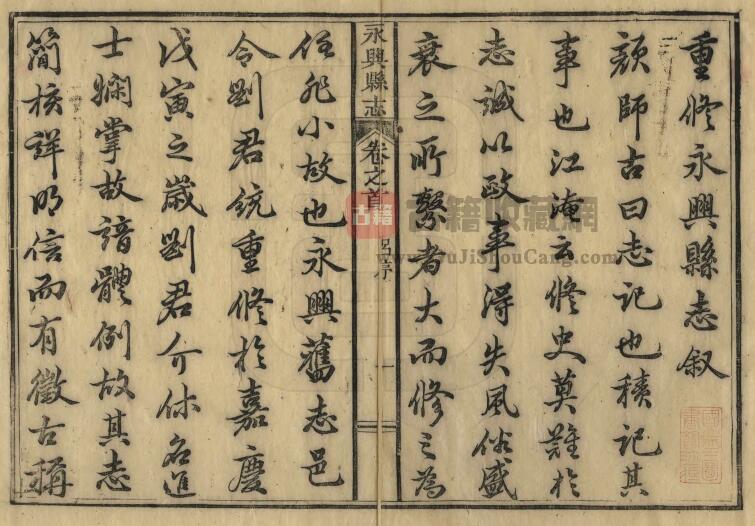 重修永興縣志叙
顔師古曰志記也積記其
事也江淹云修史莫難於
志誠以政事得失風俗盛
衰之所繫者大而修之為
永興縣志 卷之首 呂序 一
任非小故也永興舊志邑
令劉君統重修於嘉慶
戊寅之歲劉君介休名進
士嫻掌故諳體例故其志
簡核詳明信而有徵古稱
古籍
古籍收藏網
www.GuJiShouCang.com